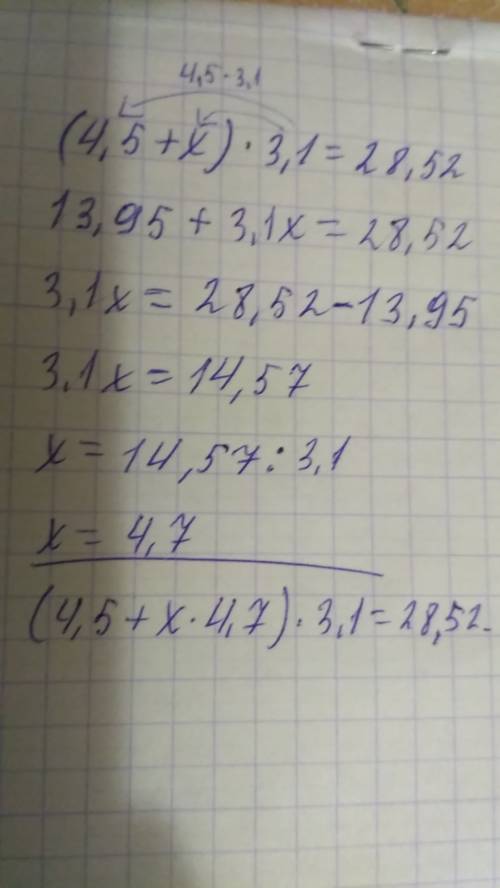 4,5 · 3,1
(4,5 + x) · 3,1 = 28,52
13,95 + 3,1x = 28,52
3,1x = 28,52 - 13,95
3,1x = 14,57
x = 14,57 : 3,1
x = 4,7
(4,5 + x · 4,7) · 3,1 = 28,52.